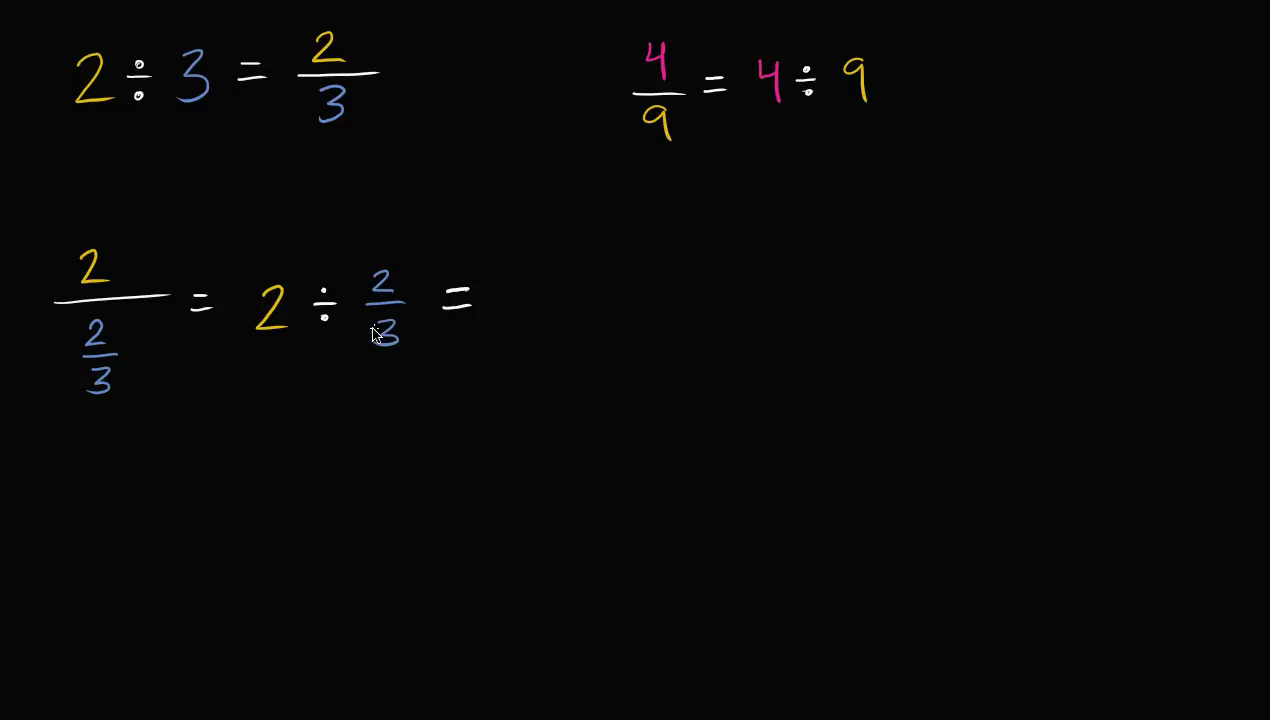 2 ÷ 3 = 2/3
4/9 = 4 ÷ 9
2/(2/3) = 2 ÷ 2/3 =